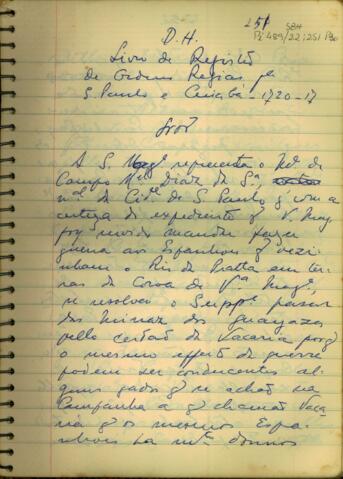 D.H. 251 SBH
Pi 489/22:251 P30
Livro de Registro
de Ordens Regias pª
S. Paulo e Cuiabá - 1720-17
Snor
A S. Magᵉ representa o Mᵉ de
Campo Mᵉˡ Dias da Sª,
nᵃˡ da Cidᵉ de S. Paulo q' com a
certeza do expediente q' V. Mag
foy servido mandar fazer
guerra aos Espanhois q' vezi
nham o Rio da Pratta em ter
ras da Coroa de Vª Magᵉ,
se resolveo o Suppᵉ passar
das Minas dos Guayazes
pello certão da Vacaria porq'
o mesmo effeito da guerra
podem ser conducentes al
guns gados q' se achão na
Campanha a q' chamão Vaca
ria q' os mesmos Espa
nhois ha mᵗᵒˢ annos